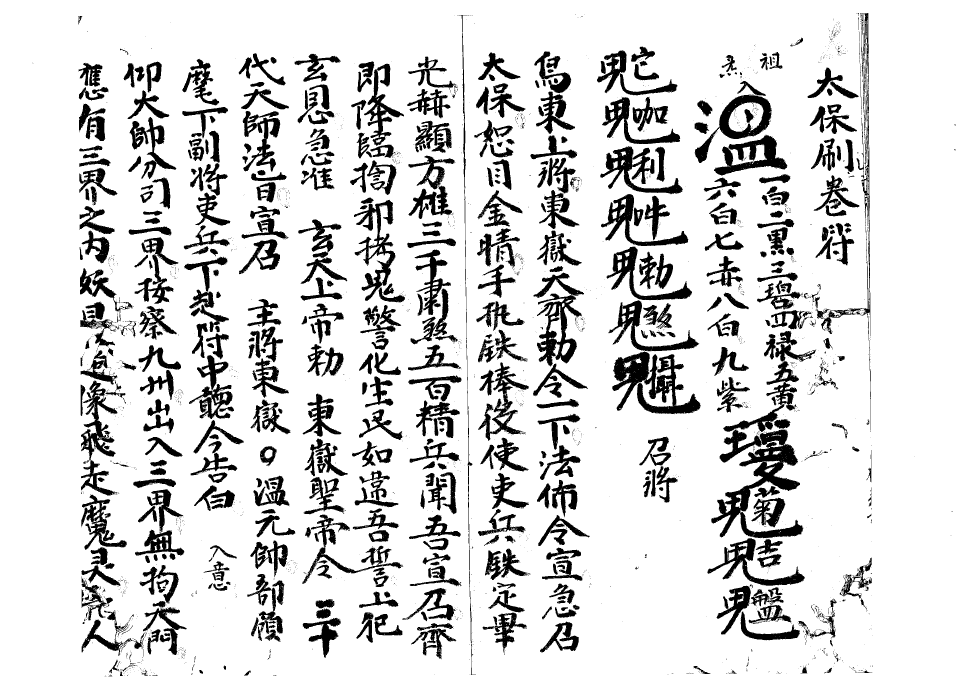 太保刷卷符
祖炁入
溫
一白二黑三碧四祿五黃
六白七赤八白九紫
瓊
菊吉盤
它咖利吽勅煞攝
召將
烏東上將東獄天齊勅令一下法佈令宣急召
太保怒目金睛手执鉄棒役使吏兵鉄定畢
光赫顯方雄三千肅煞五百精兵聞吾宣召齊
即降臨捨邪拷鬼警化生民如違吾誓上犯
玄恩急准 玄天上帝勅 東嶽聖帝令 三十
代天師法旨宣召 主將東嶽 溫元帥部領
麾下副將吏兵下赴符中聽令告白 入意
仰大帥分司三界桉察九州出入三界無拘天門
應有三界之內妖 飛走魔灵 人